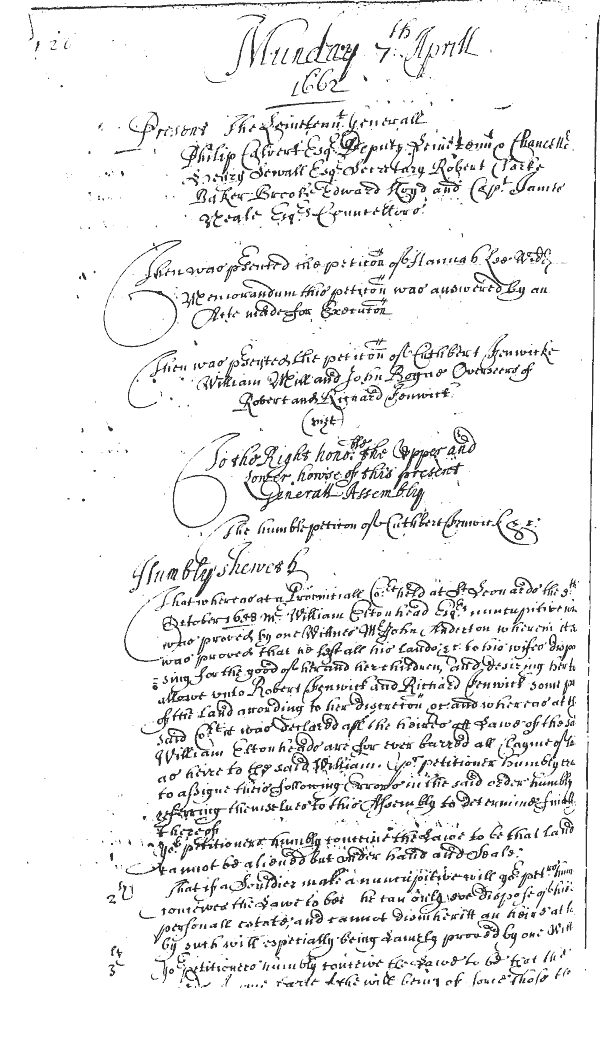 126
Munday 7th Aprill
1662
Present The Leiuetent Generall
Philip Calvert Esqr Deputy Leiuetennt & Chancellr
Henry Sewall Esqr Secretary Robert Clarke
Baker Brooke Edward Lloyd and Capt James
Neale Esqrs Councellors
Then was psented the peticon of Hannah Lee Widd
Memorandum this peticon was answered by an
Acte made for Execucon
Then was psented the peticon of Cuthbert Fenwicke
William Mill and John Bogue Overseers of
Robert and Richard Fenwick
(vizt)
To the Right honoble the Upper and
Lower howse of this present
Generall Assembly
The humble peticon of Cuthbert Fenwick &c:
Humbly Sheweth
That whereas at a Provinciall Cort held at St Leonards the 5th
October 1658 Mr William Eltonhead Esqrs nuncupitive
was proved by one Witnes Mr John Anderton wherein it
was proved that he left all his Lands &c to his wifes dispo
sing for the good of her and her children, and desiring her to
allowe vnto Robert Fenwick and Richard Fenwick some
of the Land according to her discretion &c and whereas at the
said Cort it was declared all the heires att Lawe of the sd
William Eltonheade are for ever barred all Clayme of
as heire to the said William. Yor petitioner humbly
to assigne theis following Errors in the said order humbly
referring themselves to this Assembly to determine finally
thereof
1 Yor petitioners humbly conceive the Lawe to be that Land
cannot be aliened but vnder hand and Seale.
2ly That if a Souldier make a nuncupitive will yor petrs hum
conceives the Lawe to bee he can only dispose of his
personall estate, and cannot disinheritt an heire at
by such will especially being Lamely proved by one Witt
3ly Yor petitioners humbly conceive the Lawe to be that the
the will being of some those the